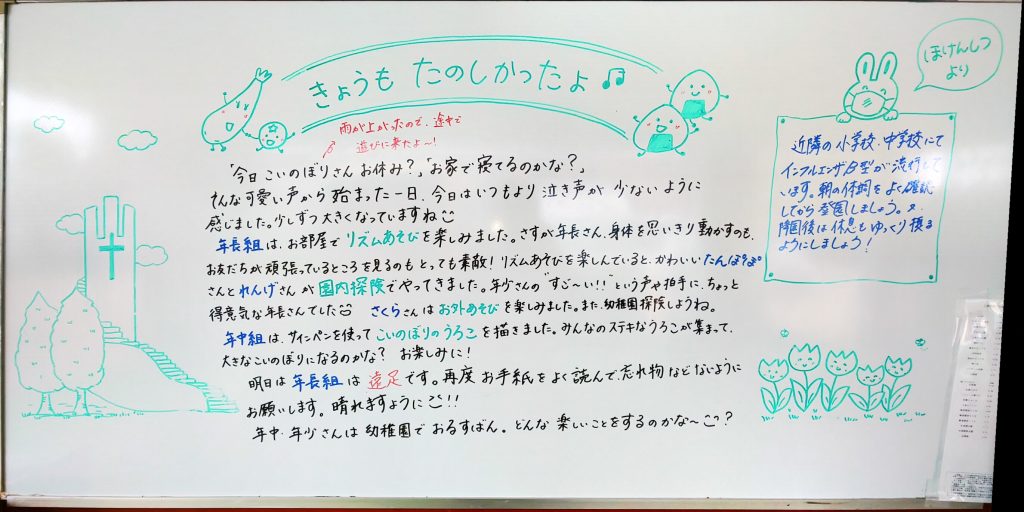 きょうも たのしかったよ♫
雨が上がったので、途中で
遊びに来たよ～!
「今日 こいのぼりさん お休み?」「お家で寝てるのかな?」
そんな可愛い声から 始まった一日、今日はいつもより 泣き声が 少ないように
感じました。少しずつ 大きくなっていますね
年長組は、お部屋で リズムあそびを楽しみました。さすが年長さん、身体を思いきり 動かすのも、
お友だちが 頑張っているところを見るのも とっても素敵! リズムあそびを楽しんでいると、かわいいたんぽぽ
さんとれんげさん が 園内探険でやってきました。年少さんの “すご～い!!” という声や拍手に、ちょっと
得意気な年長さんでした さくらさんは お外あそびを楽しみました。また、幼稚園探険しようね。
年中組は、サインペンを使って こいのぼりのうろこ を描きました。みんなのステキなうろこが集まって、
大きなこいのぼりになるのかな? お楽しみに!
明日は 年長組は 遠足です。再度 お手紙を よく読んで、忘れ物などないように
お願いします。晴れますように!!
年中・年少さんは 幼稚園で おるすばん。どんな 楽しいことをするのかな～?
ほけんしつ
より
近隣の小学校・中学校にて
インフルエンザB型が流行して
います。朝の体調をよく確認
してから登園しましょう。又、
降園後は休息をゆっくり摂る
ようにしましょう!